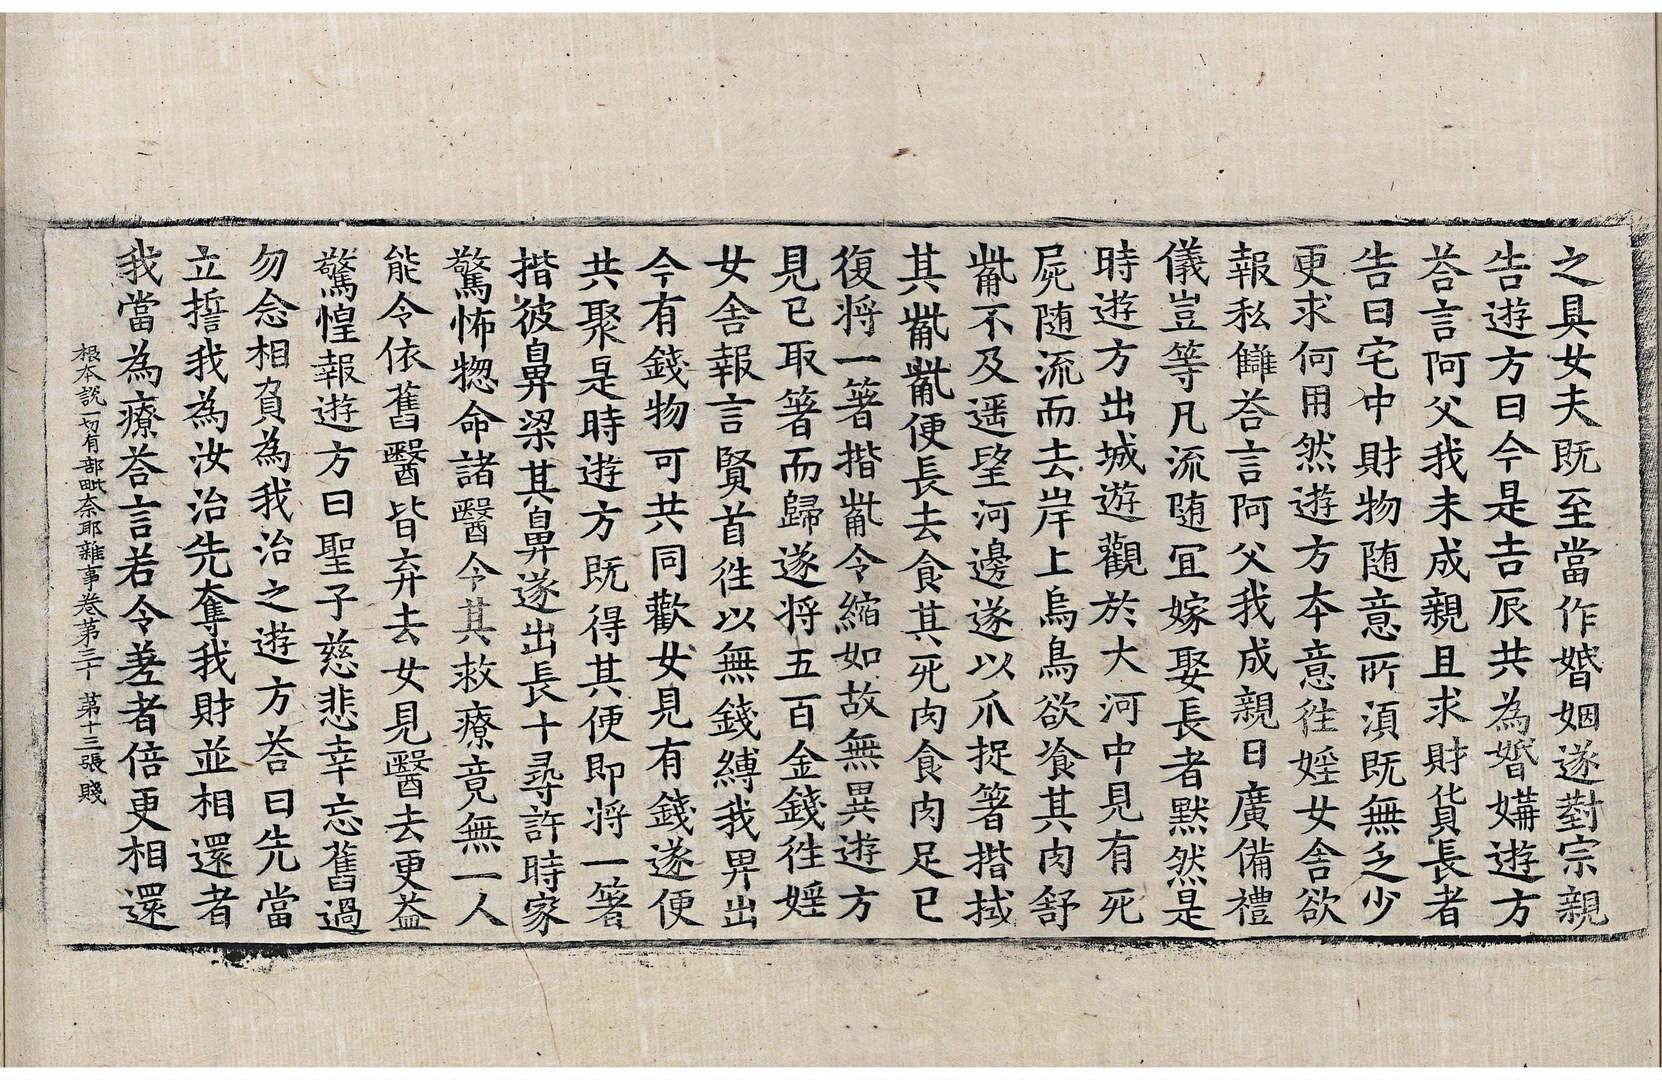 之具女夫既至當作婚姻遂對宗親
告遊方曰今是吉辰共為婚媾遊方
荅言阿父我未成親且求財貨長者
告曰宅中財物随意所湏既無乏少
更求何用然遊方本意徃婬女舍欲
報私讎荅言阿父我成親日廣備禮
儀豈等凡流随冝嫁娶長者默然是
時遊方出城遊觀於大河中見有死
屍随流而去岸上烏鳥欲飡其肉舒
觜不及遥望河邊遂以爪捉箸揩拭
其觜觜便長去食其死肉食肉足已
復将一箸揩觜令縮如故無異遊方
見已取箸而歸遂将五百金錢徃婬
女舍報言賢首徃以無錢縛我舁出
今有錢物可共同歡女見有錢遂便
共聚是時遊方既得其便即将一箸
揩彼鼻梁其鼻遂出長十尋許時家
驚怖惣命諸醫令其救療竟無一人
能令依舊醫皆弃去女見醫去更益
驚惶報遊方曰聖子慈悲幸忘舊過
勿念相負為我治之遊方荅曰先當
立誓我為汝治先奪我財並相還者
我當為療荅言若令差者倍更相還
根本說一切有部毗奈耶雜事卷第三十 第十三張 賤